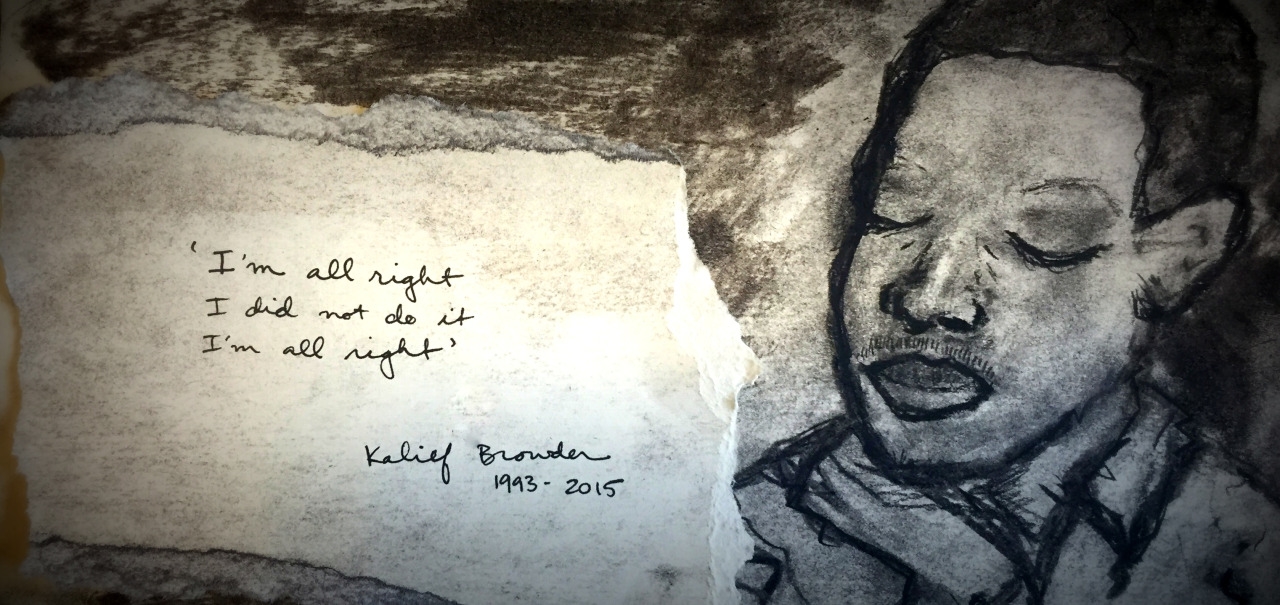 'I'm all right
I did not do it
I'm all right'
Kalief Browder
1993 - 2015